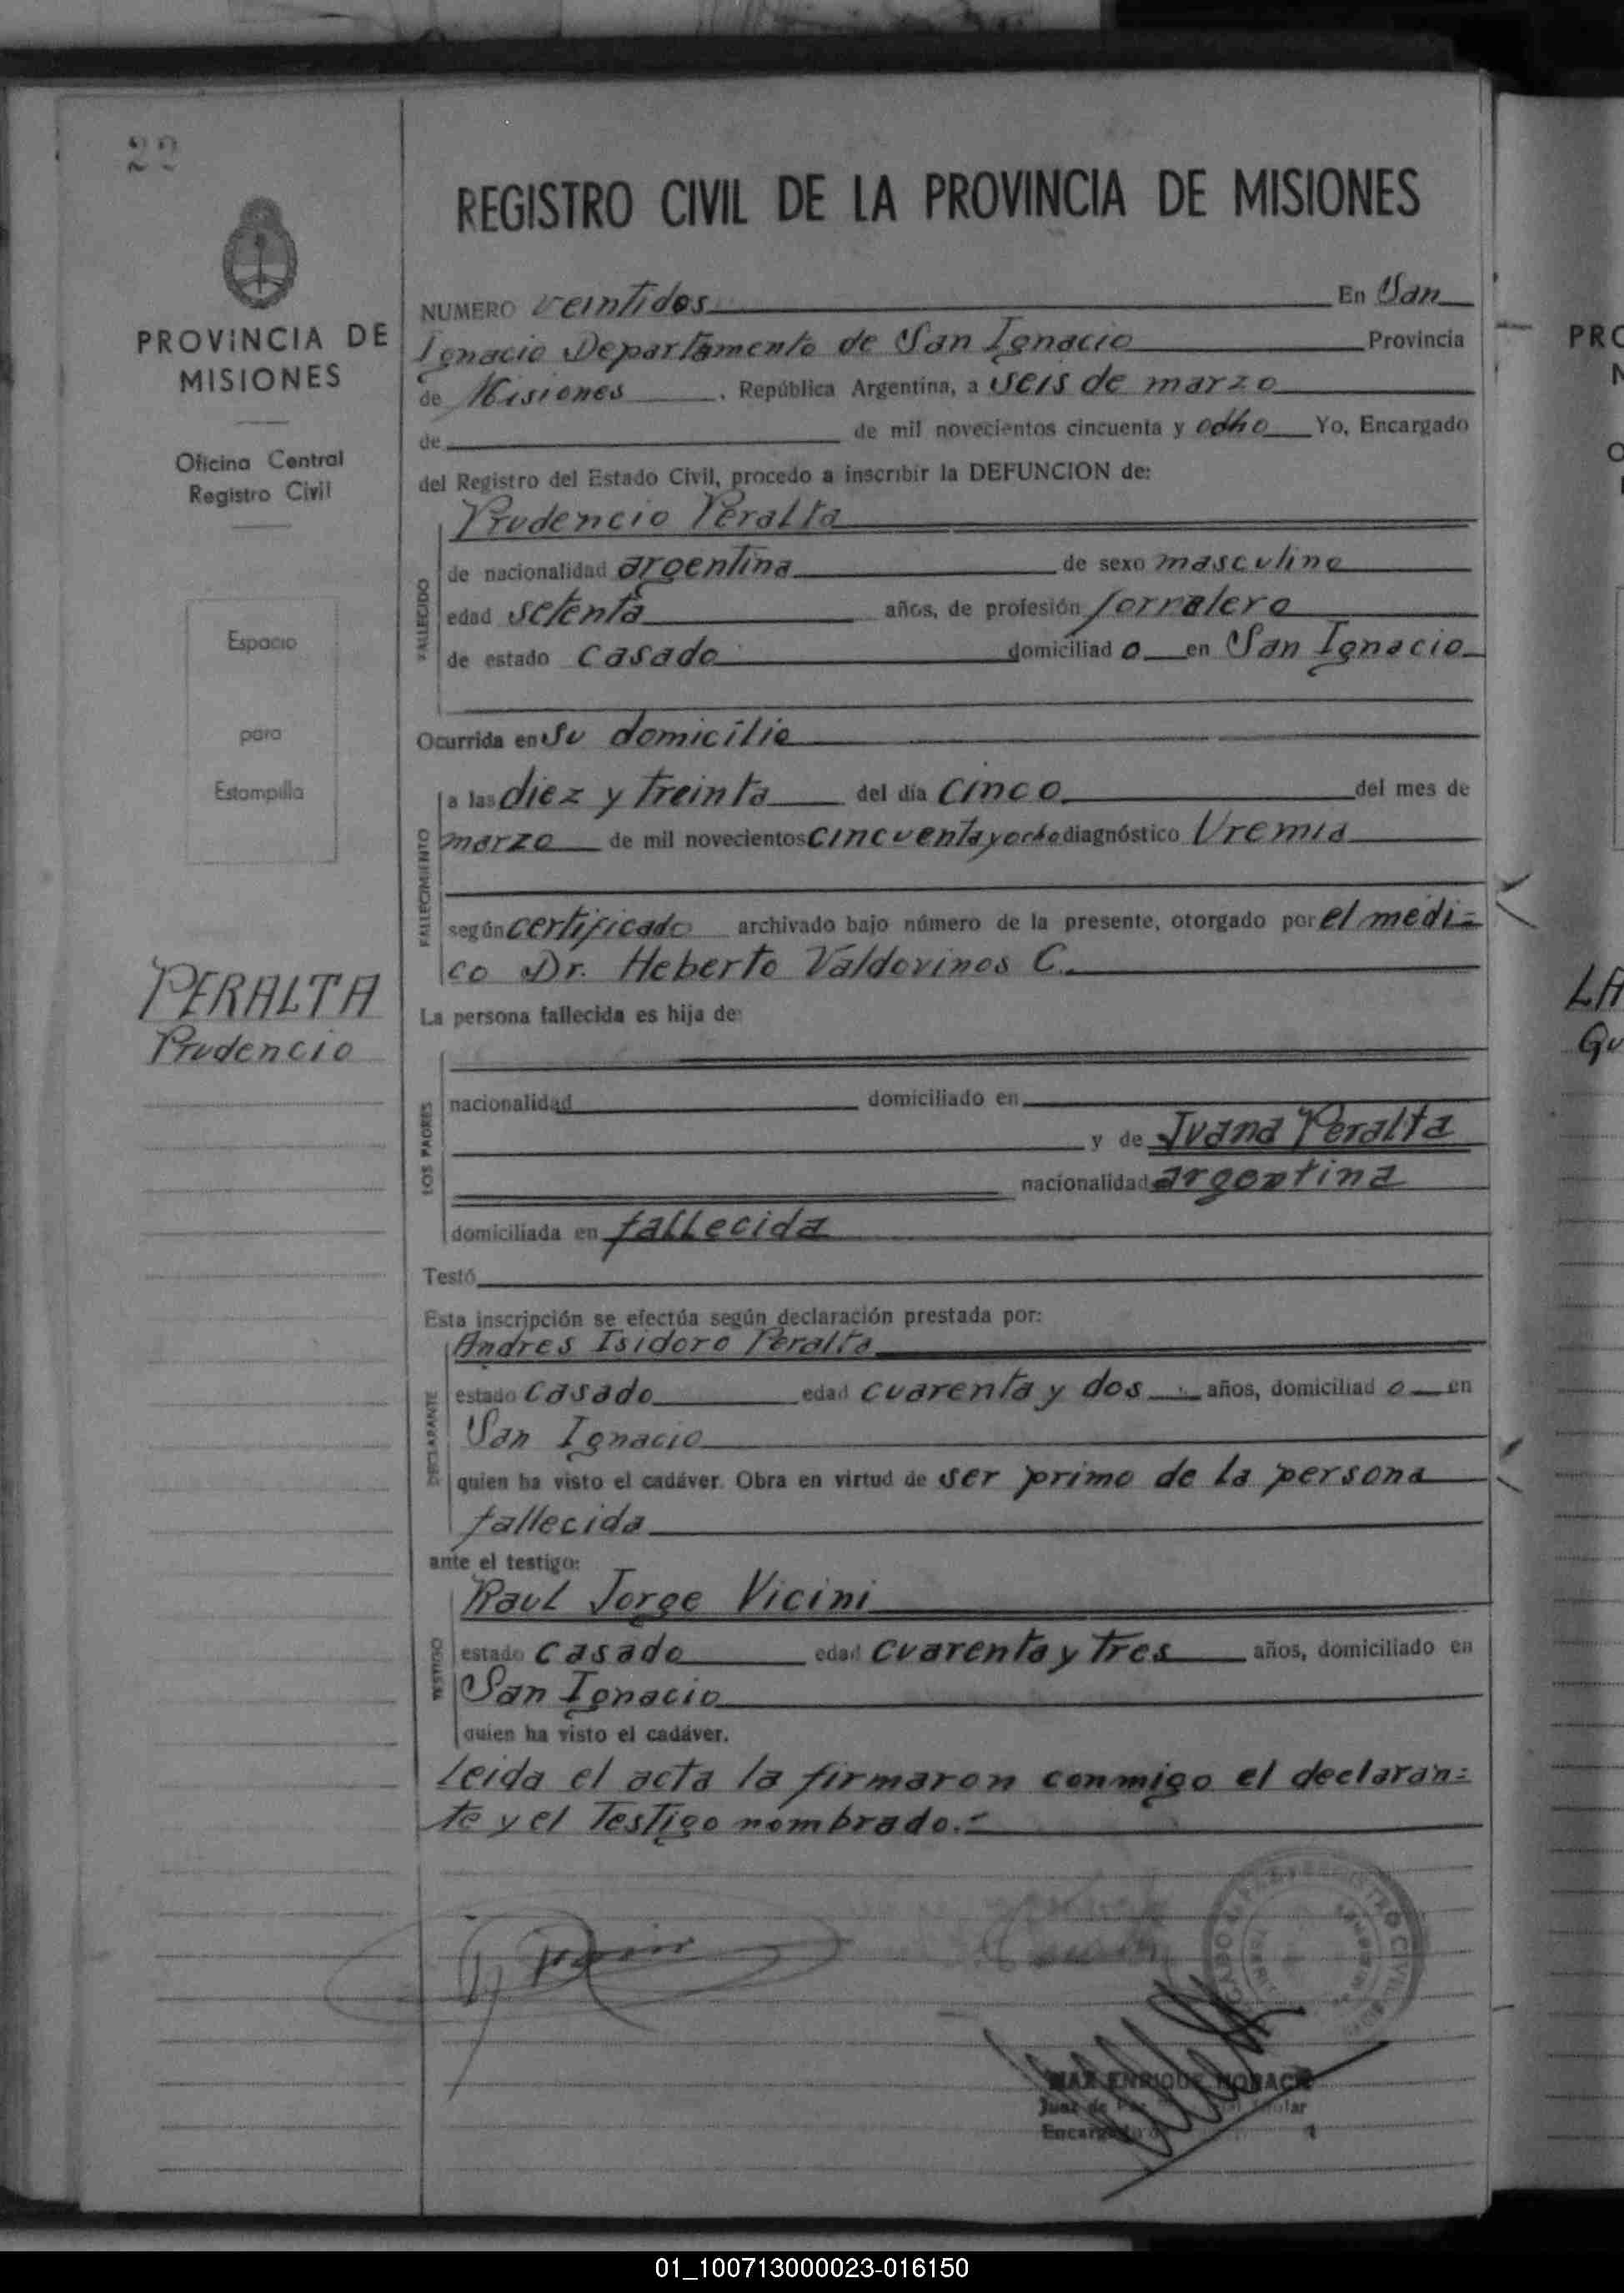 22
REGISTRO CIVIL DE LA PROVINCIA DE MISIONES
PROVINCIA DE
MISIONES
Oficina Central
Registro Civil
Espacio
para
Estampilla
PERALTA
Prudencio
NUMERO veintidos En San
Ignacio Departamento de San Ignacio Provincia
de Misiones , República Argentina, a seis de marzo
de de mil novecientos cincuenta y ocho Yo, Encargado
del Registro del Estado Civil, procedo a inscribir la DEFUNCION de:
Prudencio Peralta
FALLECIDO
de nacionalidad argentina de sexo masculino
edad setenta años, de profesión jornalero
de estado casado domiciliad o en San Ignacio
Ocurrida en su domicilio
FALLECIMIENTO
a las diez y treinta del día cinco del mes de
marzo de mil novecientos cincuenta y ocho diagnóstico Uremia
según certificado archivado bajo número de la presente, otorgado por el medi=
co Dr. Heberto Valdovinos C.
La persona fallecida es hija de:
LOS PADRES
nacionalidad domiciliado en
y de Juana Peralta
nacionalidad argentina
domiciliada en fallecida
Testó
Esta inscripción se efectúa según declaración prestada por:
Andres Isidoro Peralta
DECLARANTE
estado casado edad cuarenta y dos años, domiciliad o en
San Ignacio
quien ha visto el cadáver. Obra en virtud de ser primo de la persona
fallecida
ante el testigo:
Raul Jorge Vicini
TESTIGO
estado casado edad cuarenta y tres años, domiciliado en
San Ignacio
quien ha visto el cadáver.
Leida el acta la firmaron conmigo el declaran=
te y el testigo nombrado.-
MAX ENRIQUE MORACH
Juez de Paz
PRO
LA
Gu
01_100713000023-016150